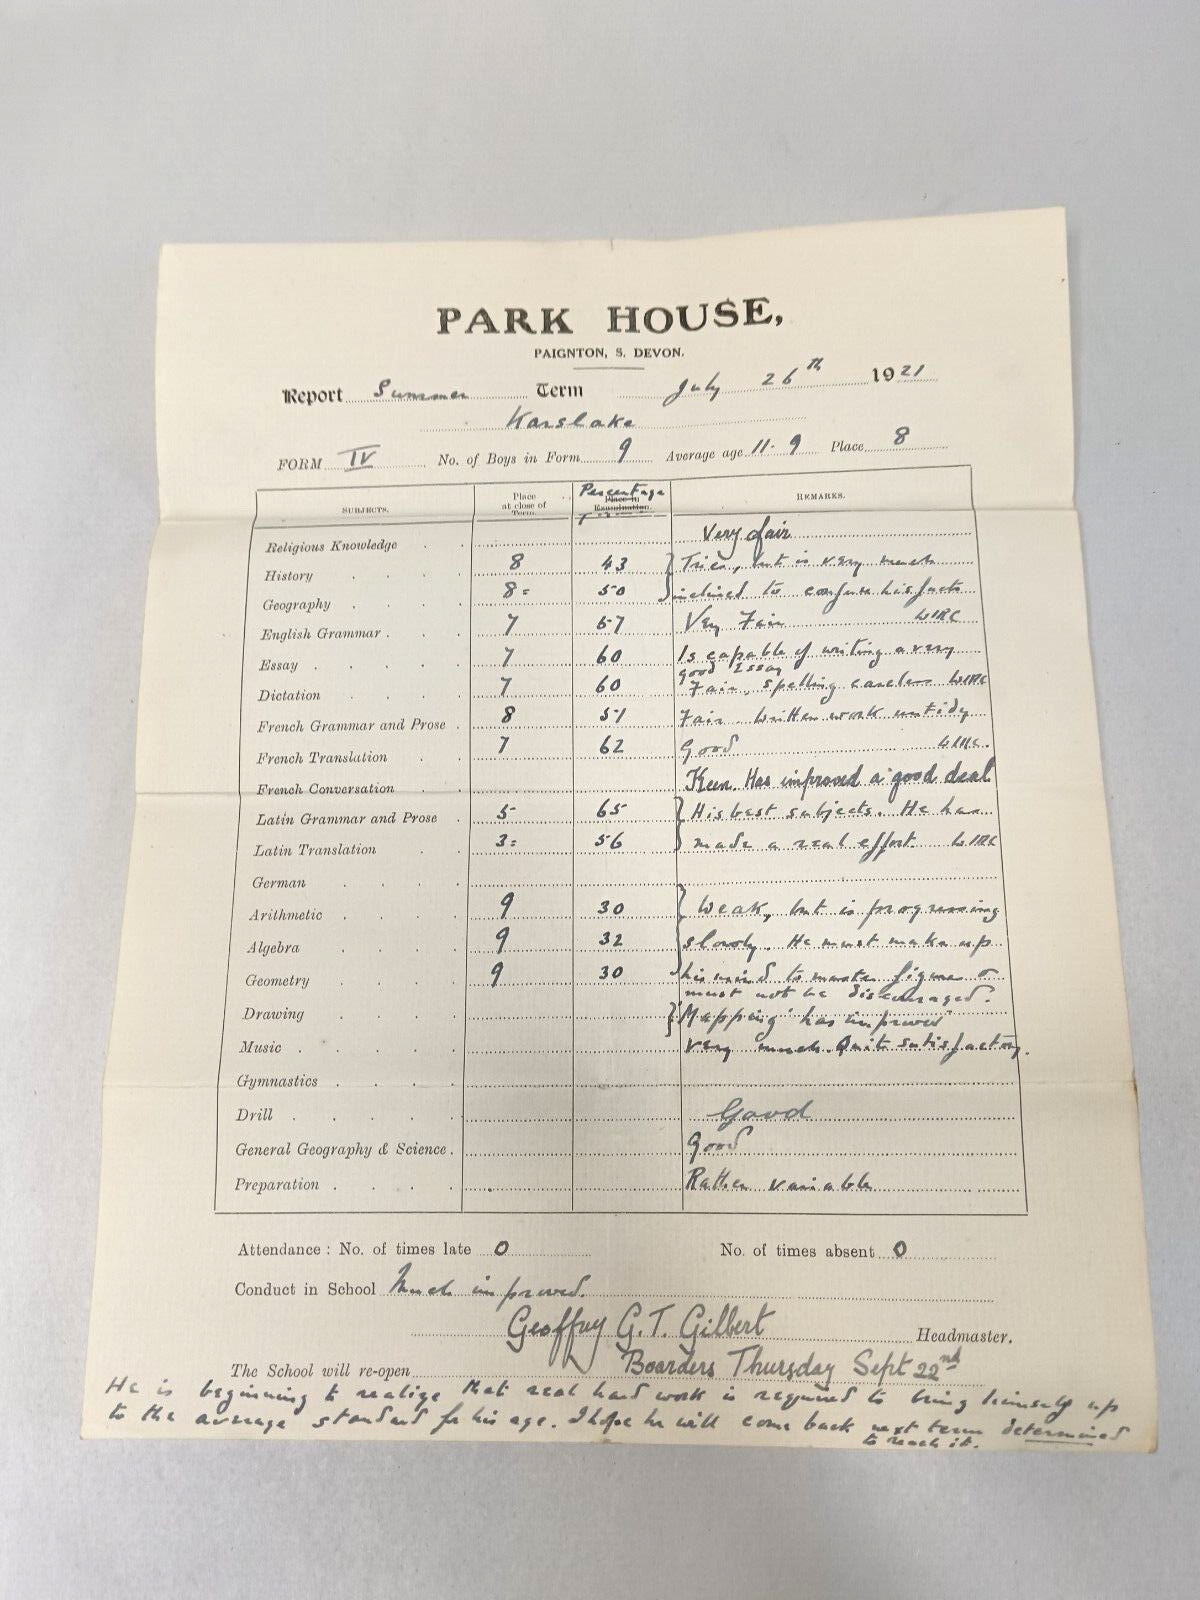 PARK HOUSE,
PAIGNTON, S. DEVON.
Report Summer Term July 26th 1921
Karslake
FORM IV No. of Boys in Form 9 Average age 11-9 Place 8
SUBJECTS. Place at close of Term. Percentage Place in Examination. REMARKS.
Religious Knowledge Very fair
History 8 43 Tries, but is very much
Geography 8= 50 inclined to confuse his facts
English Grammar 7 57 Very Fair WRC
Essay 7 60 Is capable of writing a very
good Essay
Dictation 7 60 Fair, spelling careless WRC
French Grammar and Prose 8 51 Fair. Written work untidy
French Translation 7 62 Good WRC.
French Conversation Keen. Has improved a good deal
Latin Grammar and Prose 5 65 His best subjects. He has
Latin Translation 3= 56 made a real effort. WRC
German
Arithmetic 9 30 Weak, but is progressing
Algebra 9 32 slowly. He must make up
Geometry 9 30 his mind to master figures &
must not be discouraged.
Drawing 'Mapping' has improved
Music very much. Quite satisfactory.
Gymnastics
Drill Good
General Geography & Science. Good
Preparation Rather variable
Attendance: No. of times late 0 No. of times absent 0
Conduct in School Much improved.
Geoffrey G. T. Gilbert Headmaster.
The School will re-open Boarders Thursday Sept 22nd
He is beginning to realize that real hard work is required to bring himself up
to the average standard for his age. I hope he will come back next term determined
to reach it.